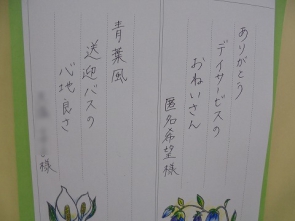 ありがとう
デイサービスの
おねいさん
匿名希望様
青葉風
送迎バスの
心地良さ
様